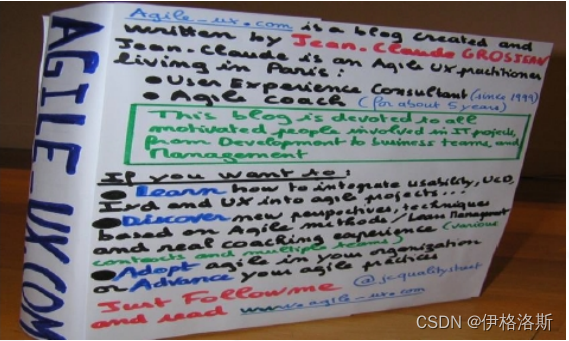 AGILE_UX.COM
Agile-ux.com is a blog created and
written by Jean-Claude GROSJEAN
Jean-Claude is an Agile UX practitioner
living in Paris:
● User Experience Consultant (since 1999)
● Agile Coach (for about 5 years)
This blog is devoted to all
motivated people involved in IT projects,
from Development to business teams and
Management
If you want to:
● Learn how to integrate usability, UCD,
IxD and UX into agile projects...
● Discover new perspectives, techniques
based on Agile methods / Lean Management
and real coaching experience (various
contexts and multiple teams)
● Adopt agile in your organization
or Advance your agile practices
Just Follow me @jcqualitystreet
and read www.agile-ux.com
CSDN @伊格洛斯